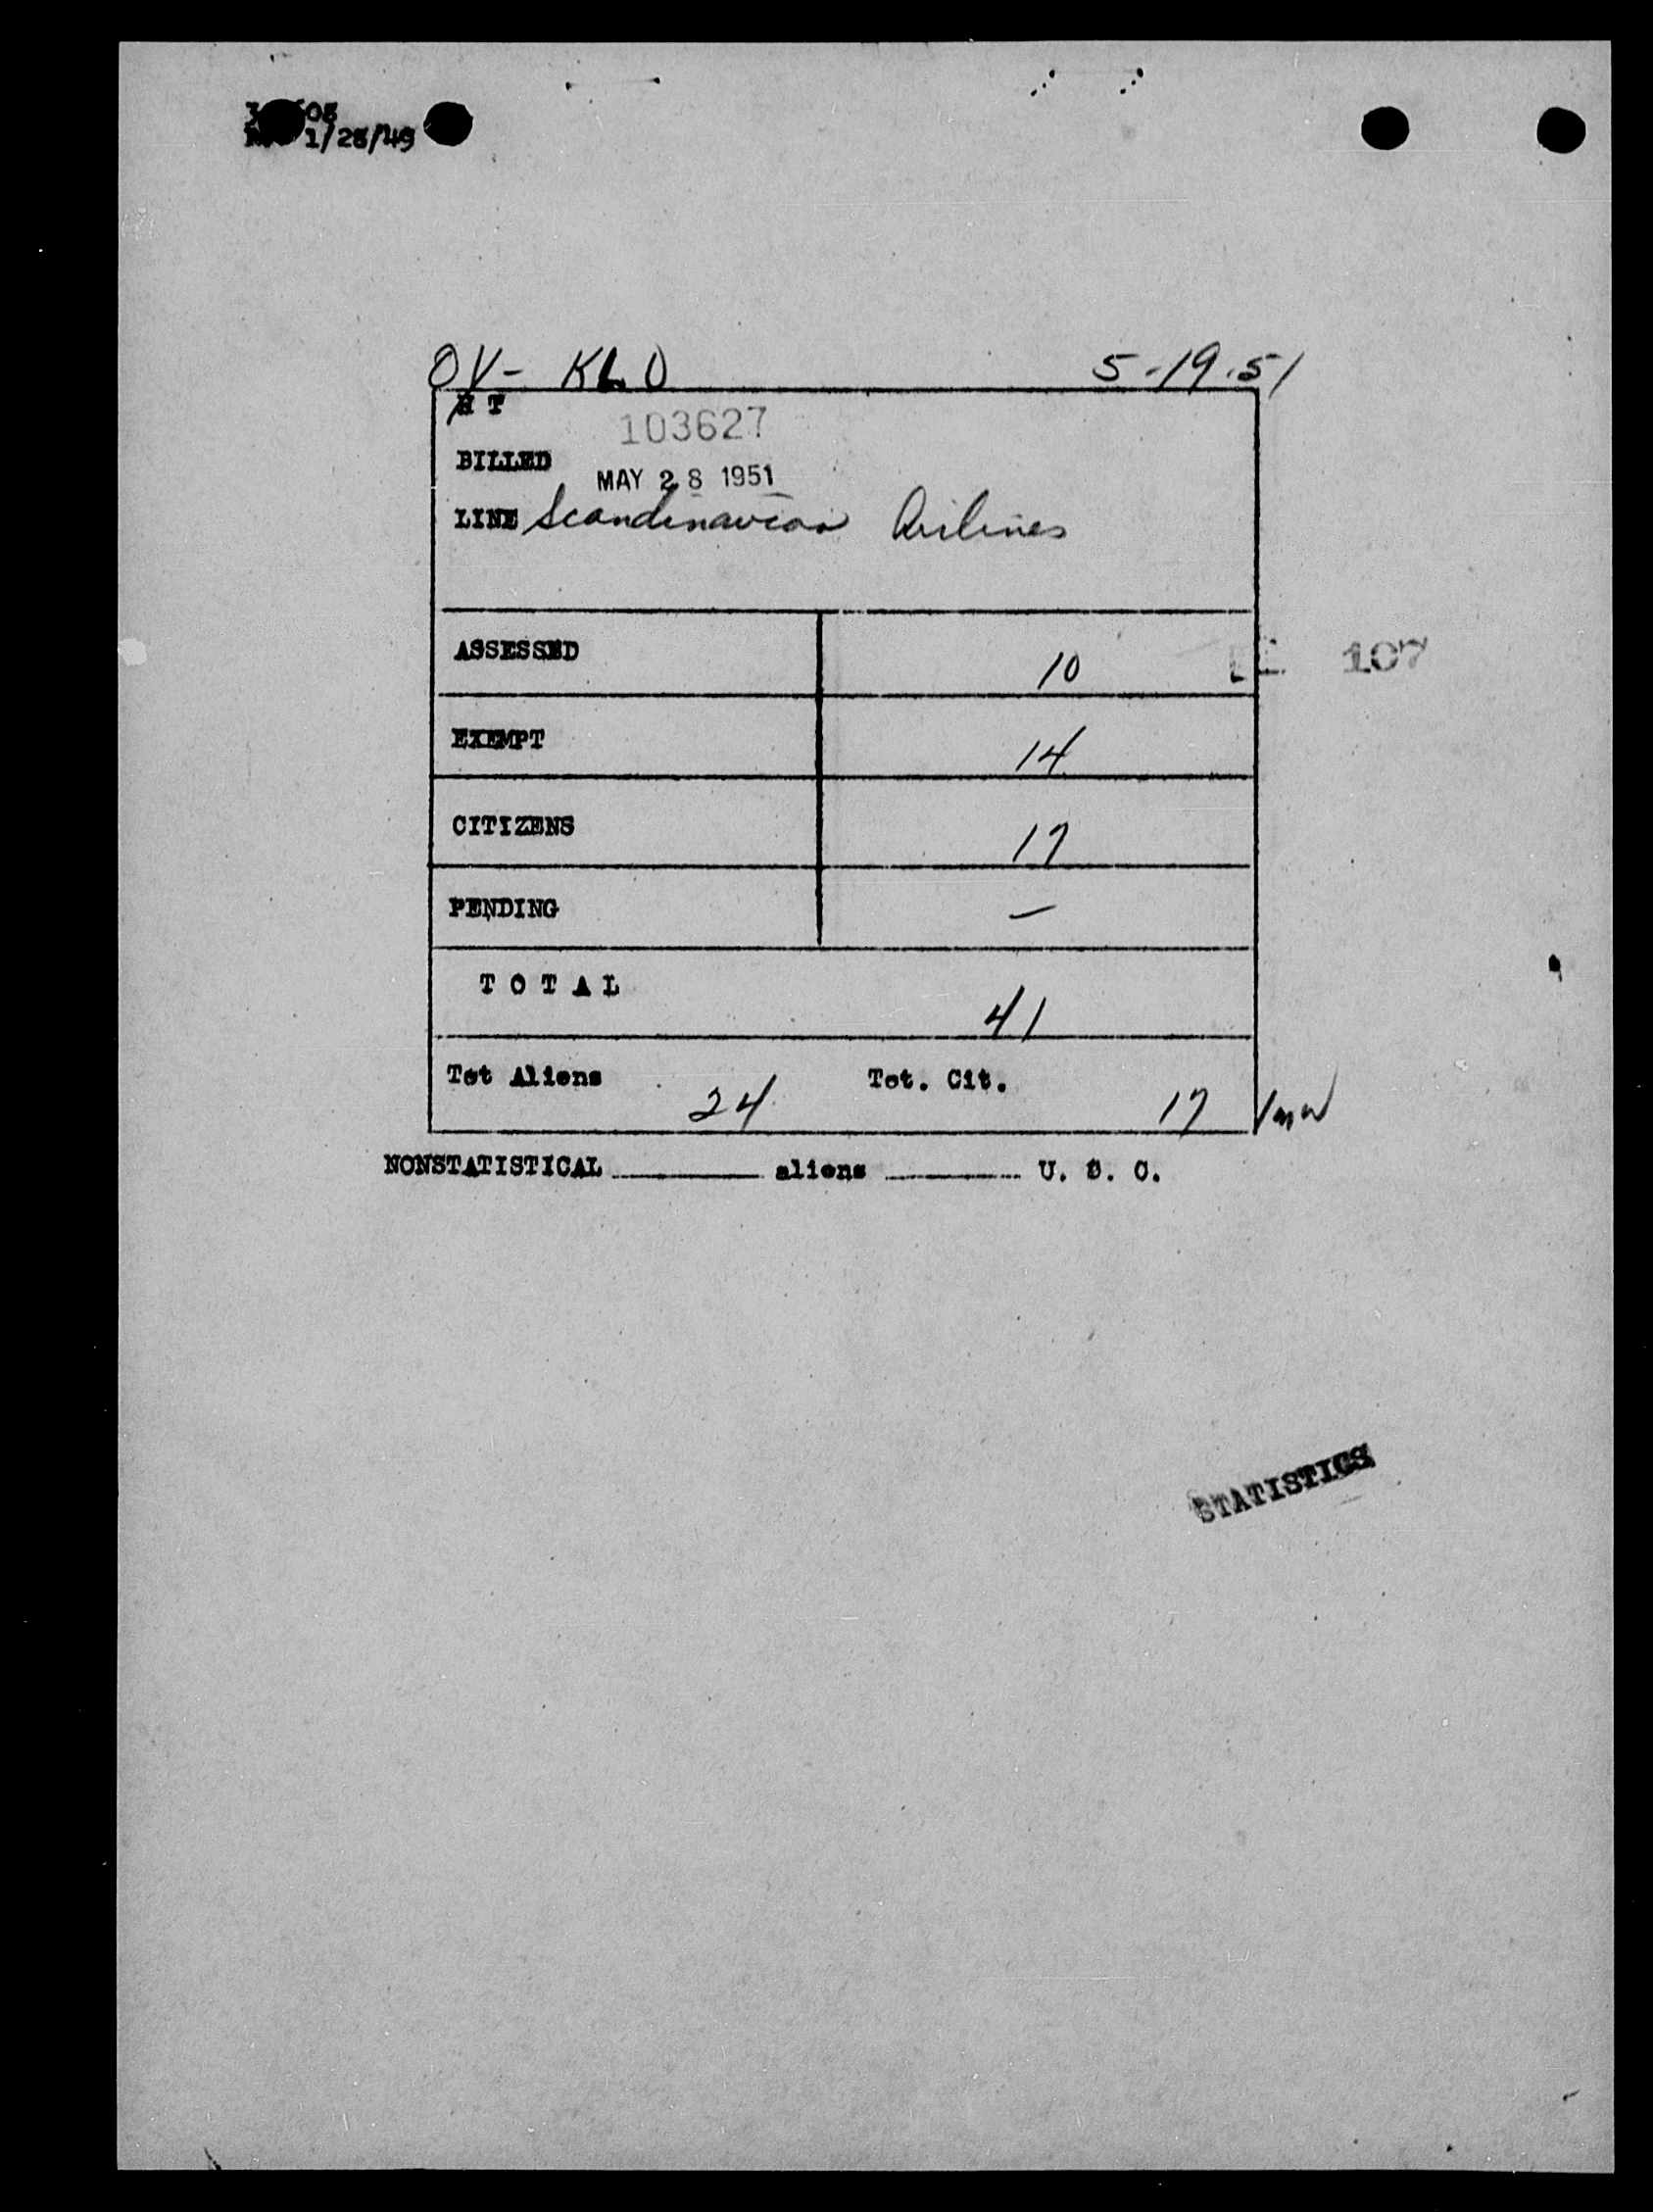 1/28/49
OY- KLO 5-19-51
H T
103627
BILLED
MAY 28 1951
LINE Scandinavian Airlines
ASSESSED 10
107
EXEMPT 14
CITIZENS 17
PENDING —
T O T A L
41
Tot Aliens 24 Tot. Cit. 17
NONSTATISTICAL aliens U. S. C.
STATISTICS